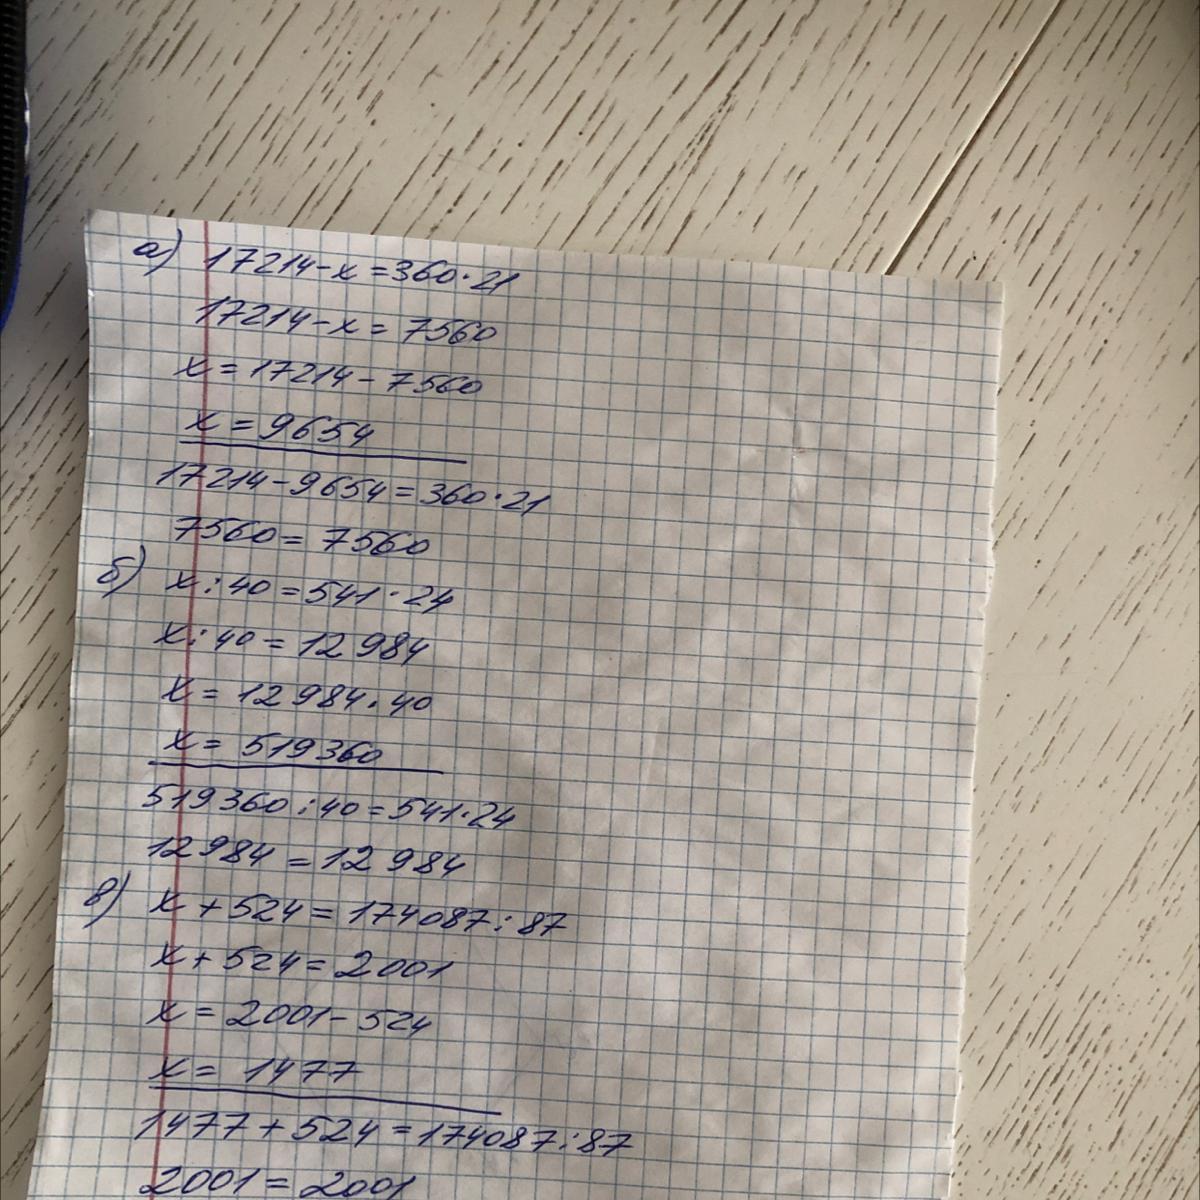 а) 17214-x=360·21
17214-x=7560
x=17214-7560
x=9654
17214-9654=360·21
7560=7560
б) x:40=541·24
x:40=12984
x=12984·40
x=519360
519360:40=541·24
12984=12984
в) x+524=174087:87
x+524=2001
x=2001-524
x=1477
1477+524=174087:87
2001=2001